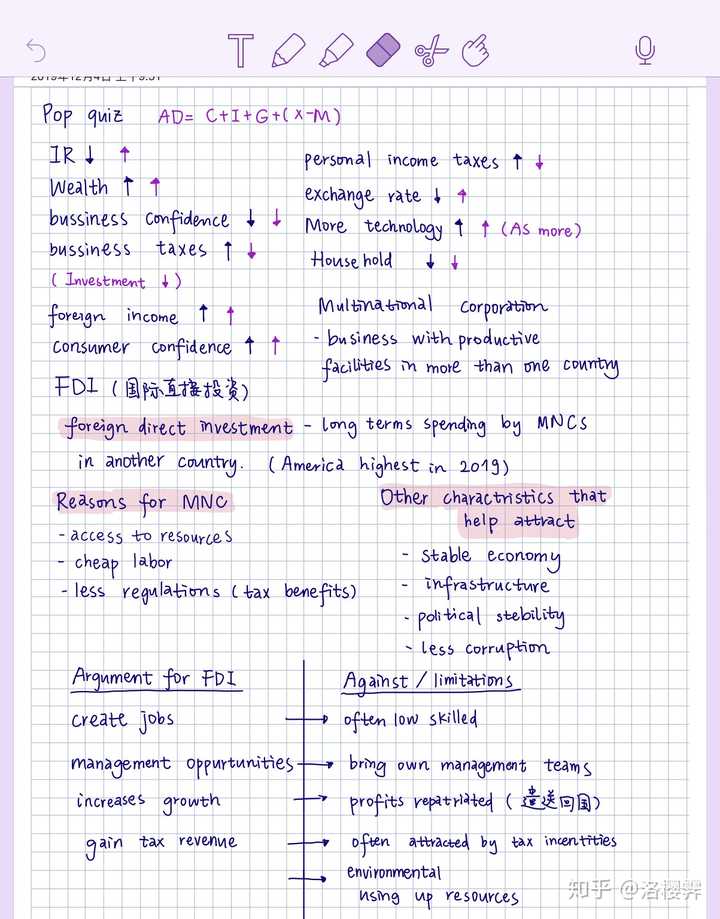 2019年12月4日 上午9:51
Pop quiz AD= C+I+G+(X-M)
IR ↓ ↑
Wealth ↑ ↑
bussiness confidence ↓ ↓
bussiness taxes ↑ ↓
( Investment ↓ )
foreign income ↑ ↑
Consumer confidence ↑ ↑
personal income taxes ↑ ↓
exchange rate ↓ ↑
More technology ↑ ↑ (AS more)
Household ↓ ↓
Multinational corporation
- business with productive
facilities in more than one country
FDI (国际直接投资)
foreign direct investment - long terms spending by MNCS
in another country. (America highest in 2019)
Reasons for MNC
- access to resources
- cheap labor
- less regulations (tax benefits)
Other charactristics that
help attract
- stable economy
- infrastructure
- political stebility
- less corruption
Argument for FDI Against / limitations
create jobs → often low skilled
management oppurtunities → bring own management teams
increases growth → profits repatriated (遣送回国)
gain tax revenue → often attracted by tax incentities
→ environmental
using up resources
知乎 @洛樱霁